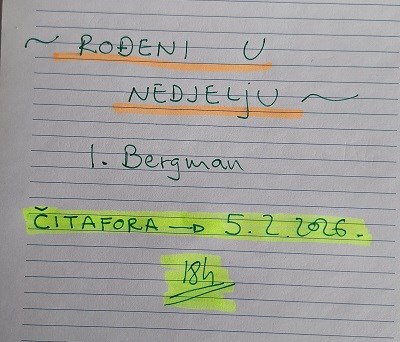 ~ ROĐENI U
NEDJELJU ~
I. Bergman
ČITAFORA → 5.2.2026.
18h